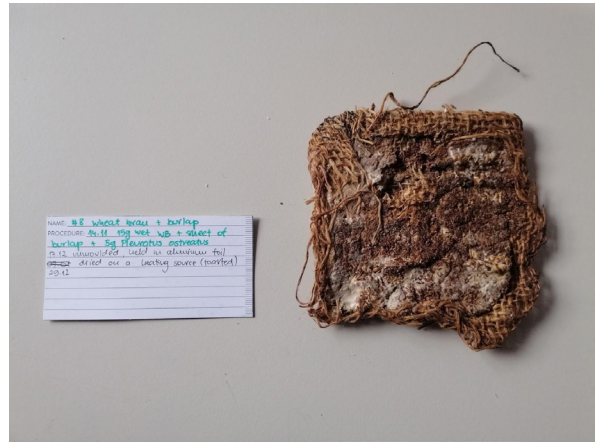 NAME: #8 Wheat bran + burlap
PROCEDURE: 14.11 15g wet WB + sheet of
burlap + 5g Pleurotus ostreatus
17.12 unmoulded held in aluminium foil
dried on a heating source (toasted)
29.12